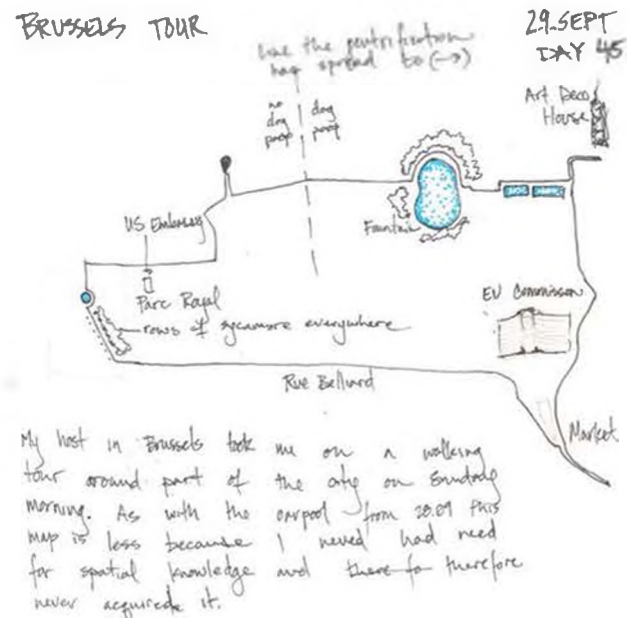 BRUSSELS TOUR
29.SEPT
DAY 45
line the gentrification
has spread to (-->)
no
dog
poop
dog
poop
Art Deco
House
US Embassy
Fountain
Parc Royal
rows of sycamore everywhere
EU Commission
Rue Belliard
Market
My host in Brussels took me on a walking
tour around part of the city on Sunday
morning. As with the carpool from 28.09 this
map is less because I never had need
for spatial knowledge and there fo therefore
never acquired it.